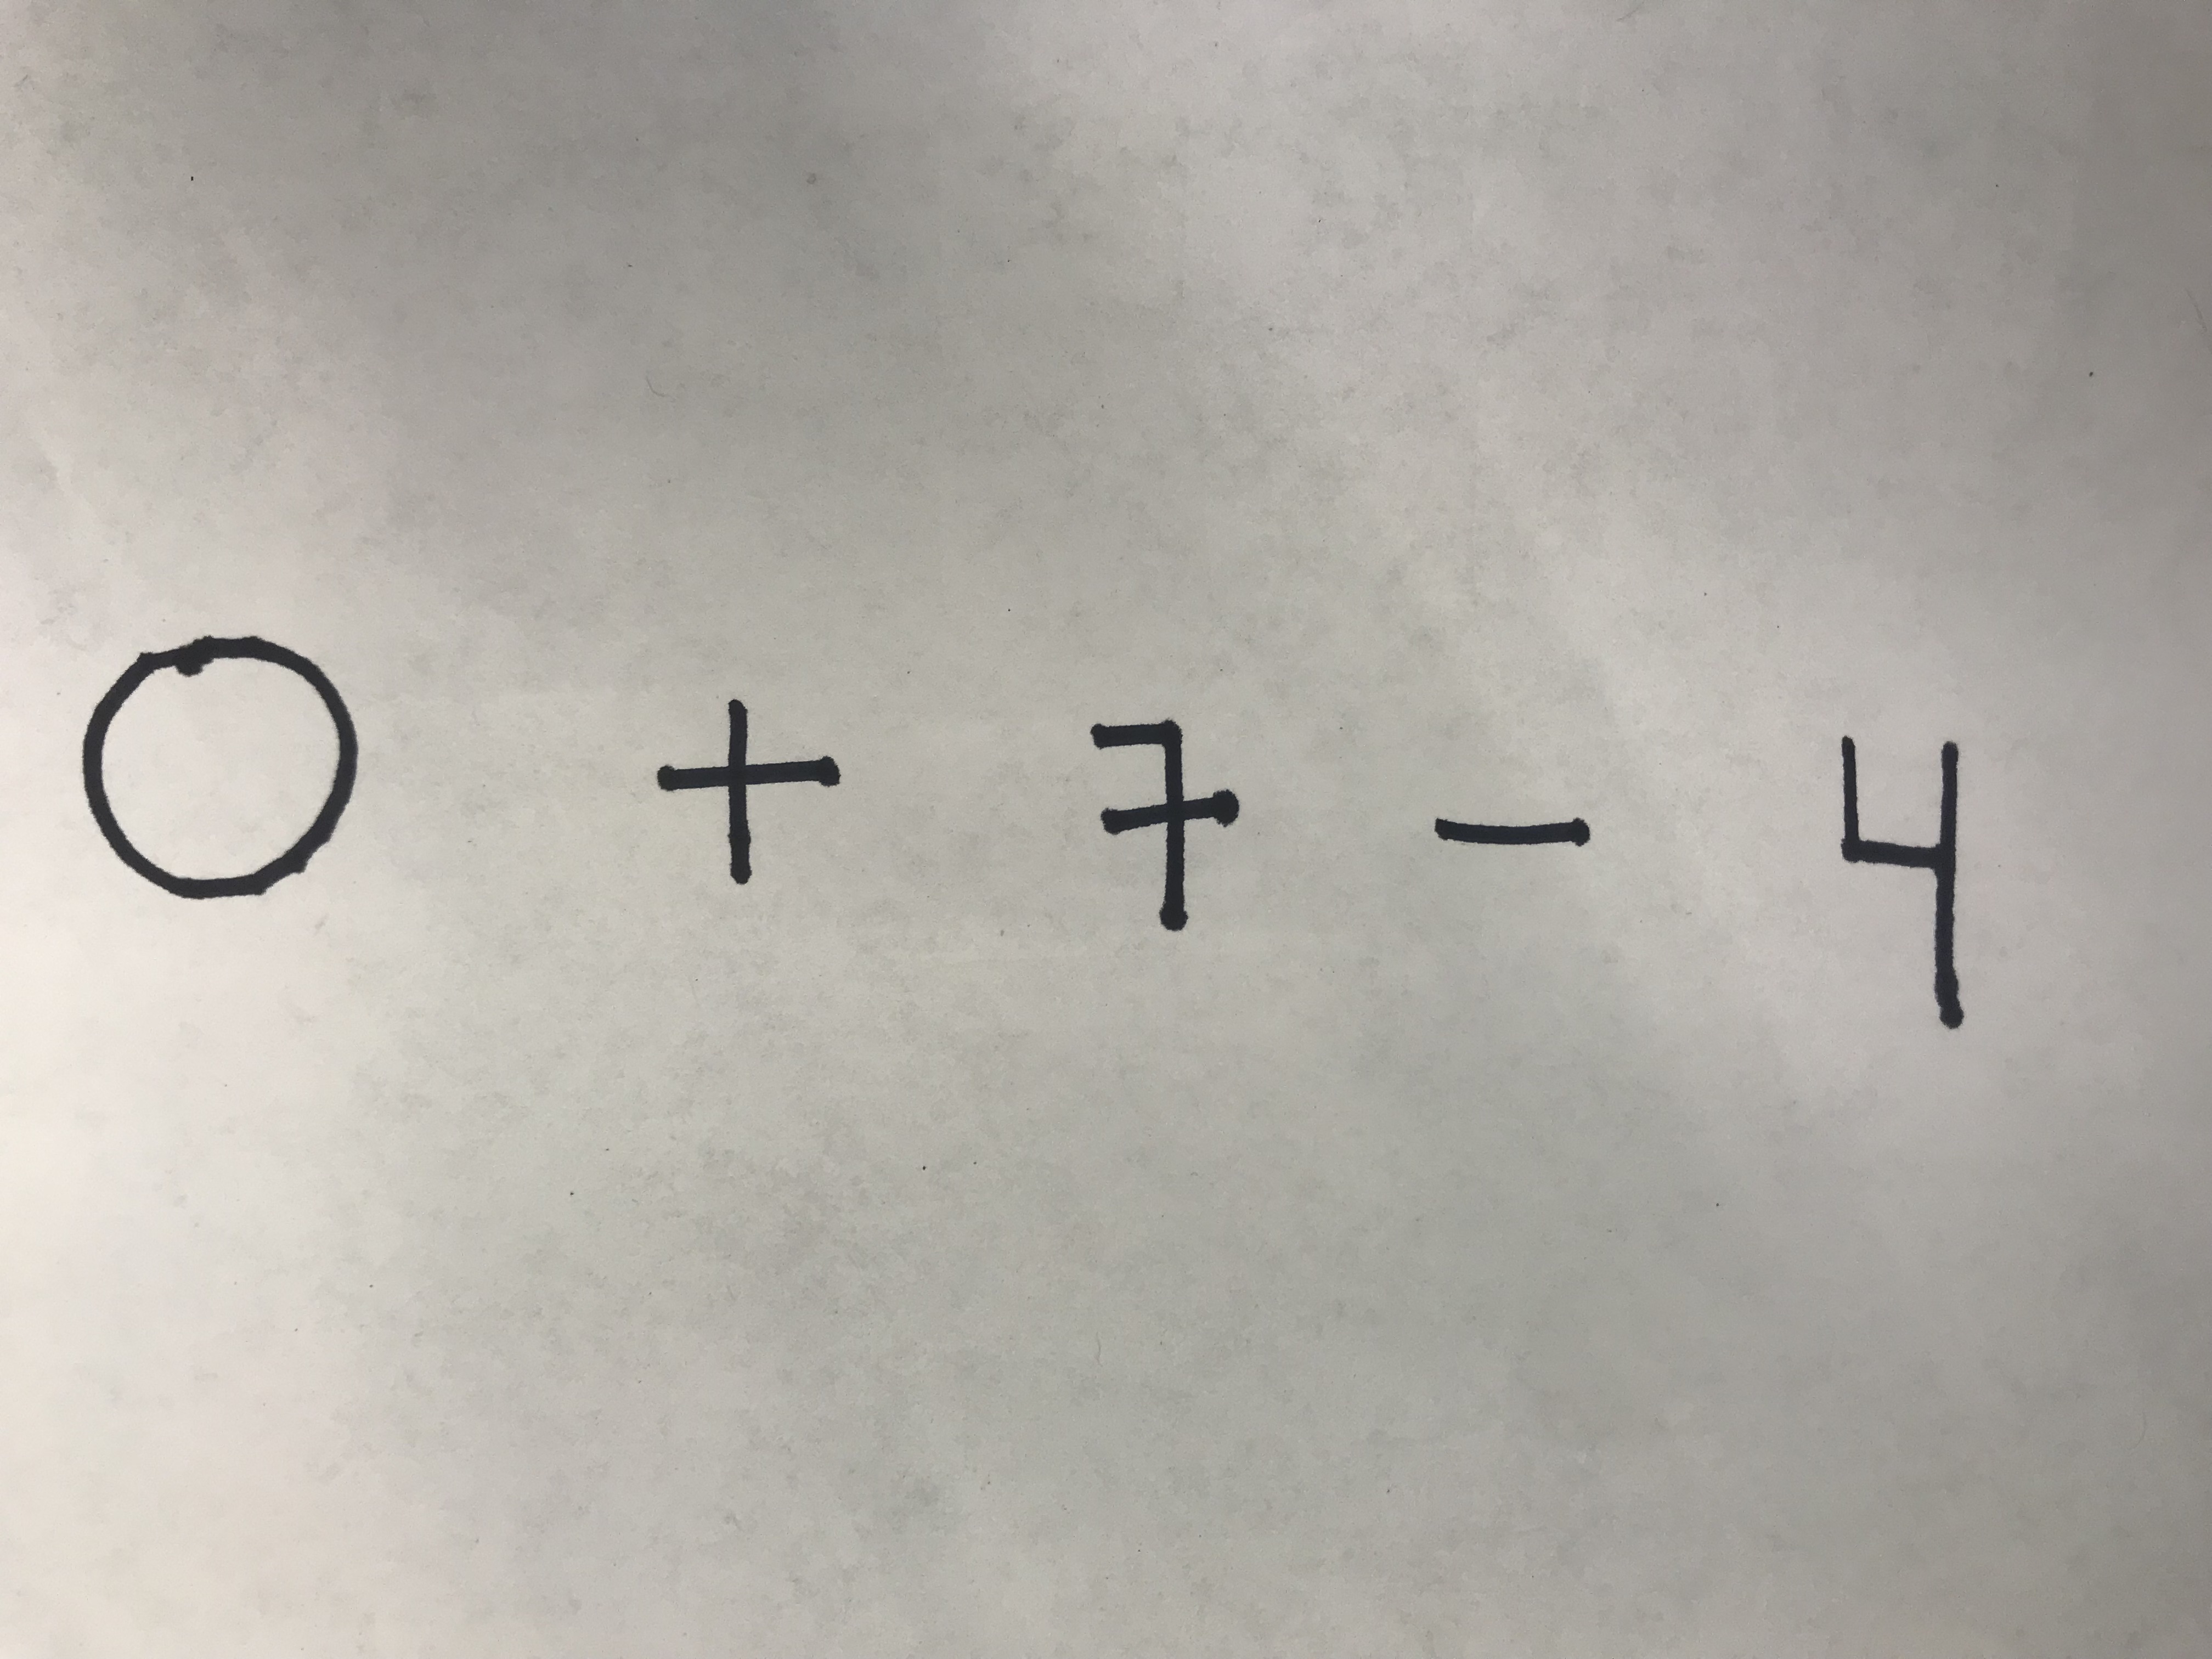 0 + 7 - 4